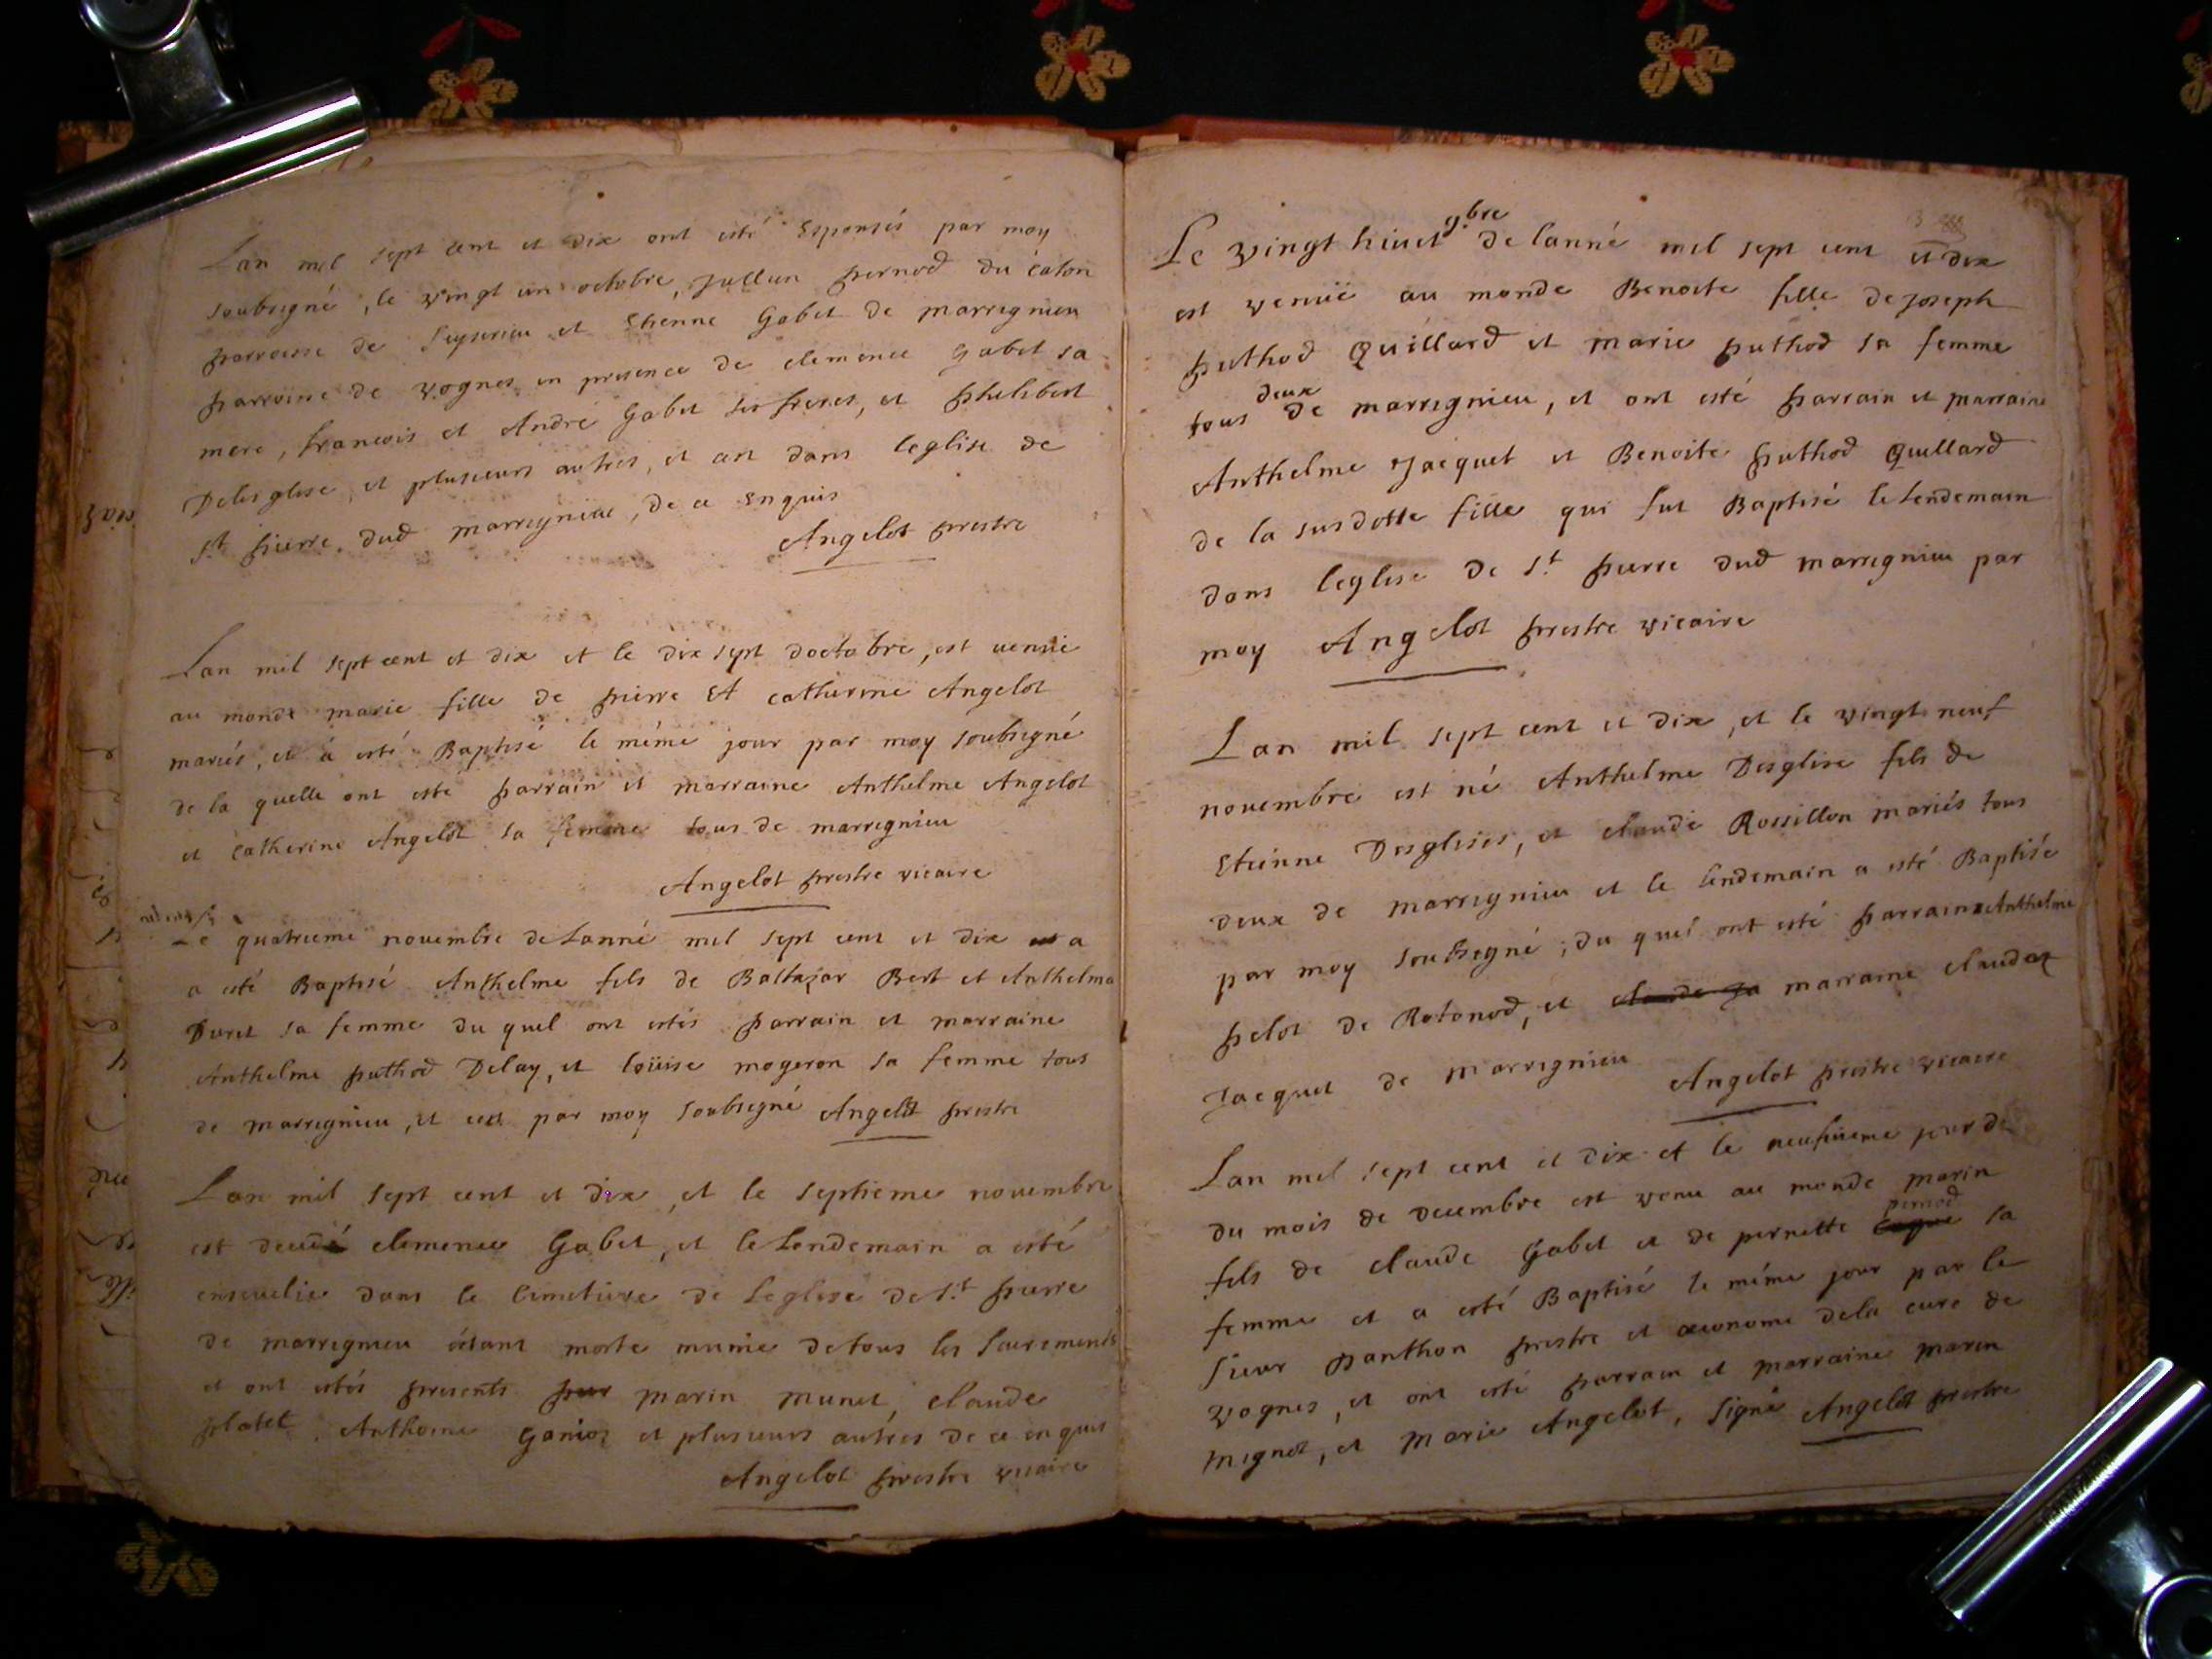 Lan mil sept cent et dix ont esté Espousés par moy
soubsigné, le vingt un octobre, Jullien pernod du caton
parroisse de Seyserieu et Etienne Gabet de marrignieu
parroisse de vognes en presence de clemence Gabet sa
mere, francois et André Gabet ses freres, et philibert
Desesglise, et plusieurs autres, et cest dans leglise de
St pierre dud marrignieu, de ce Enquis
Angelot prestre
Lan mil sept cent et dix et le dix sept doctobre, est venüe
au monde marie fille de pierre Et catherine Angelot
mariés, et à esté Baptisé le méme jour par moy soubsigné
de la quelle ont esté parrain et marraine Anthelme Angelot
et catherine Angelot sa femme tous de marrignieu
Angelot prestre vicaire
Le quatrieme novembre de Lanné mil sept cent et dix a
a esté Baptisé Anthelme fils de Baltazar Bert et Anthelma
Duret sa femme du quel ont estés parrain et marraine
Anthelme puthod Delay, et loüise mogeron sa femme tous
de marrignieu, et cest par moy soubsigné Angelot prestre
Lan mil sept cent et dix, et le septieme novembre
est decedé clemence Gabet, et le Lendemain a esté
ensevelie dans le Cimetiere de Leglise de St pierre
de marrignieu étant morte munie de tous les Sacrements
et ont estés presents par marin munet, claude
platet, Anthoine Ganioz et plusieurs autres de ce enquis
Angelot prestre vicaire
Le vingt hiuet 9.bre de lanné mil sept cent et dix
est venüe au monde Benoite fille de Joseph
puthod Quillard et marie puthod sa femme
tous deux de marrignieu, et ont esté parrain et marraine
Anthelme Jacquet et Benoite puthod Quillard
de la susdotte fille qui fut Baptisé le Lendemain
dans leglise de St pierre dud marrignieu par
moy Angelot prestre vicaire
Lan mil sept cent et dix, et le vingt neuf
novembre est né Anthelme Desglise fils de
Etienne Desglises, et claude Rossillon mariés tous
deux de marrignieu et le lendemain a esté Baptisé
par moy soubsigné, du quel ont esté parrain Anthelme
pelot de Rotonod, et claude Ja marraine claudaz
Jacquet de marrignieu
Angelot prestre vicaire
Lan mil sept cent et dix et le neufvieme jour de
du mois de decembre est venu au monde marin
fils de claude Gabet et de pernette pernod sa
femme et a esté Baptisé le méme jour par le
Sieur panthon prestre et œconome dela cure de
vognes, et ont esté parrain et marraine marin
mignot, et marie Angelot, Signé Angelot prestre